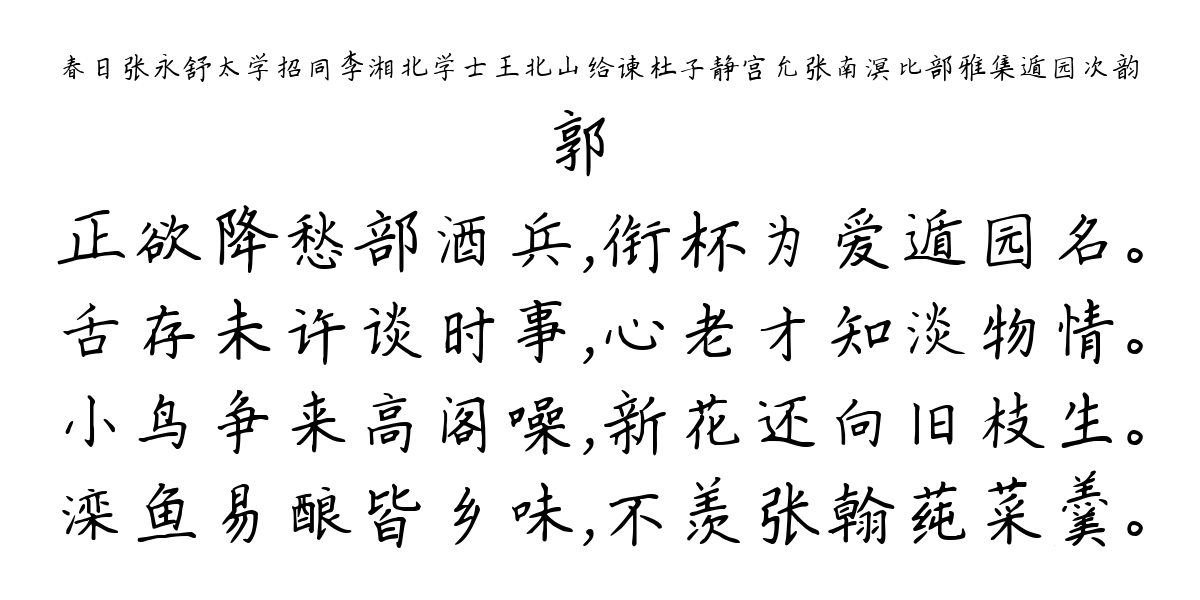 春日张永舒太学招同李湘北学士王北山给谏杜子静宫允张南溟比部雅集遁园次韵
郭
正欲降愁部酒兵,衔杯为爱遁园名。
舌存未许谈时事,心老才知淡物情。
小鸟争来高阁噪,新花还向旧枝生。
滦鱼易酿皆乡味,不羡张翰莼菜羹。